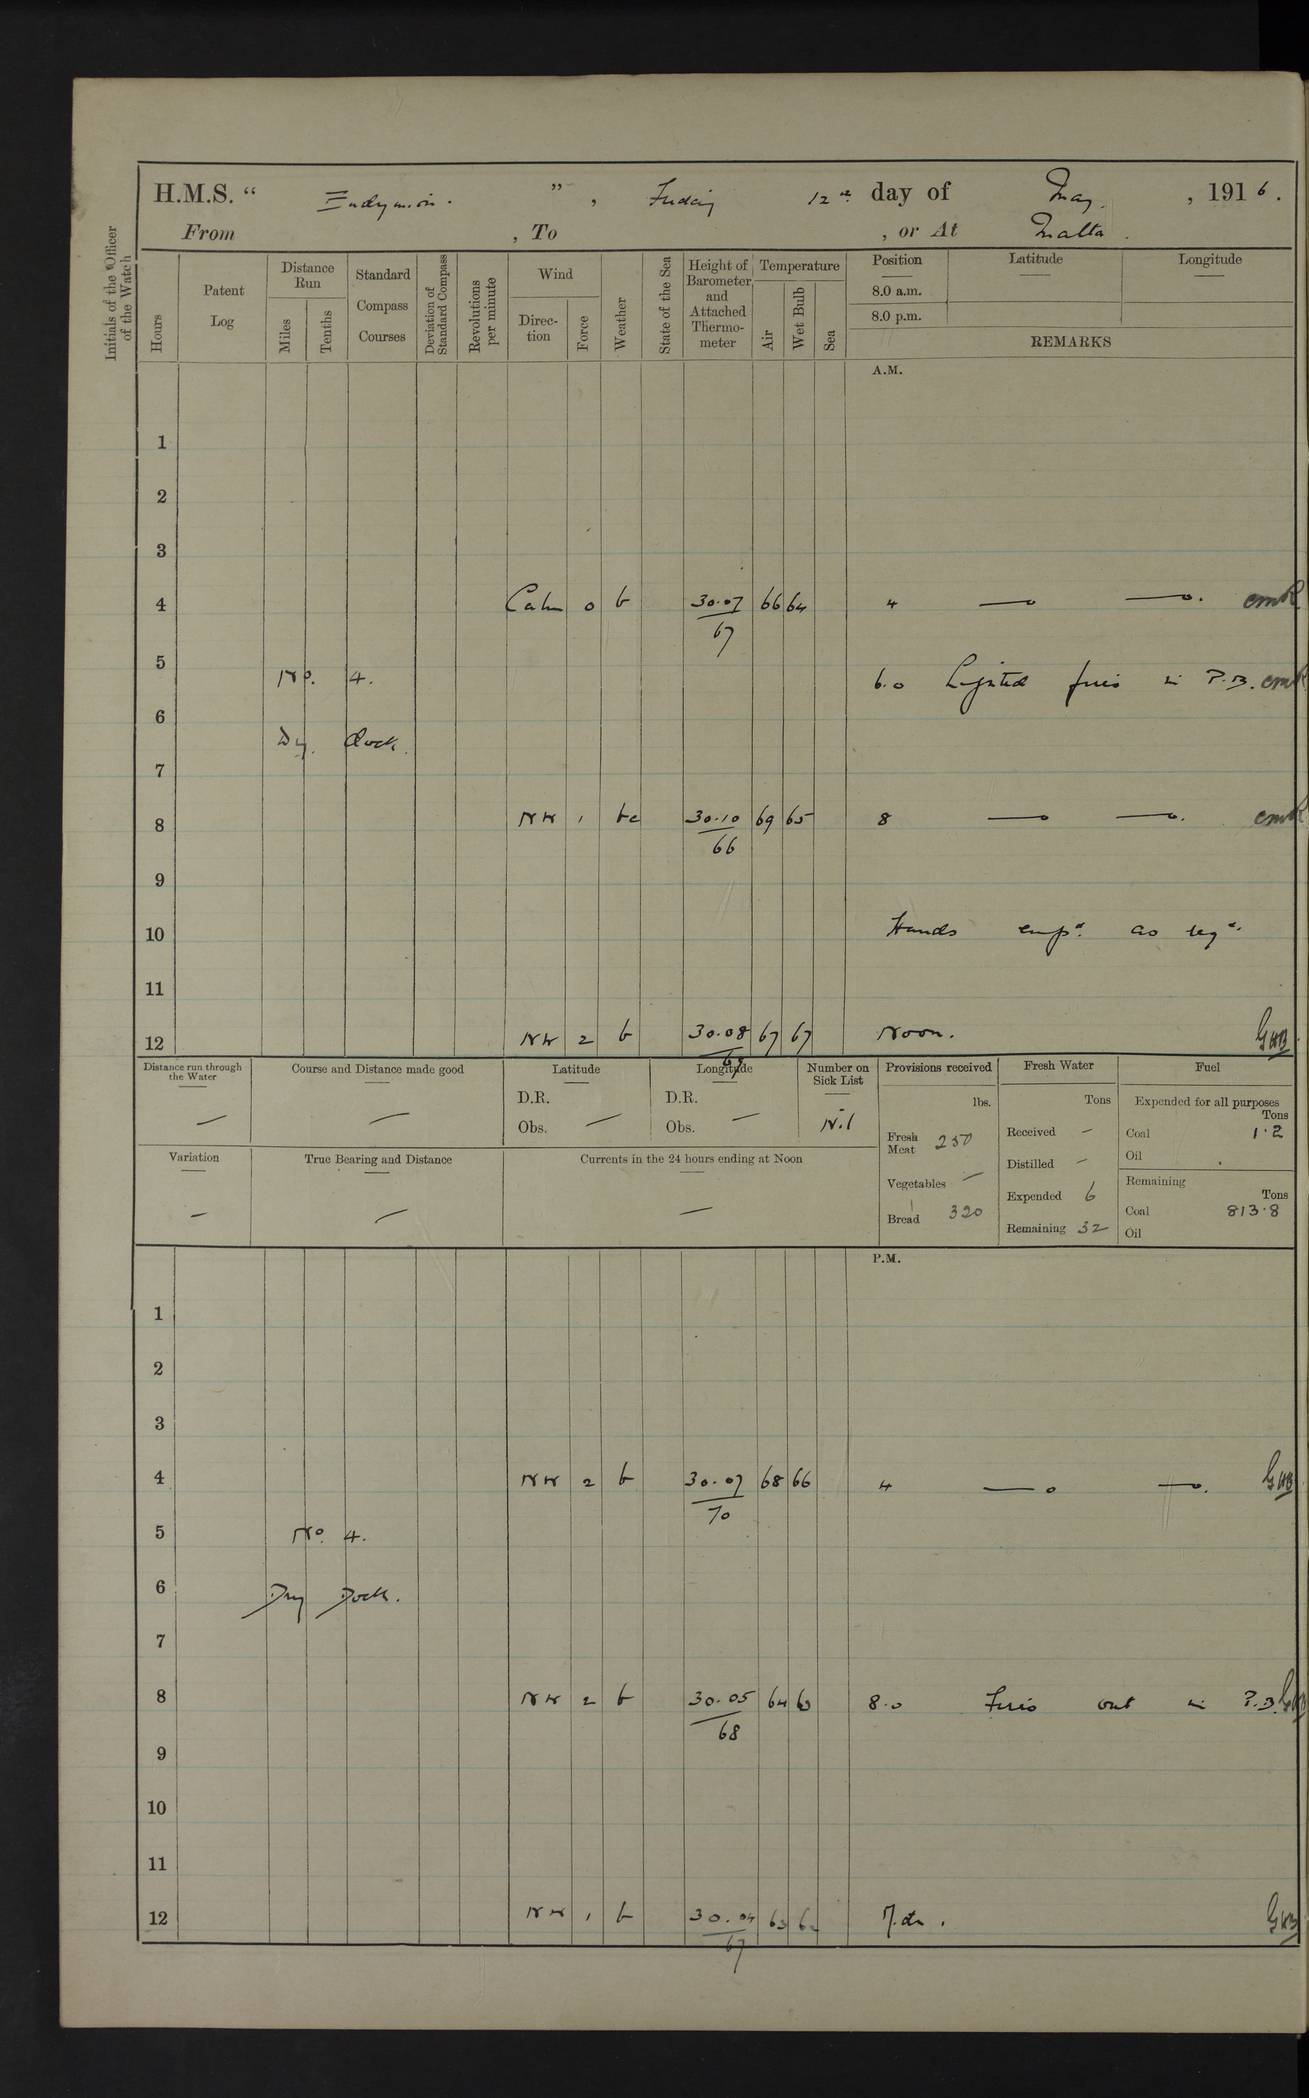 H.M.S. “ Endymion. ”, Friday 12th day of May, 1916.
From , To , or At Malta.
Initials of the Officer of the Watch
Hours
Patent Log
Distance Run
Miles
Tenths
Standard Compass Courses
Deviation of Standard Compass
Revolutions per minute
Wind
Direction
Force
Weather
State of the Sea
Height of Barometer and Attached Thermometer
Temperature
Air
Wet Bulb
Sea
Position
Latitude
Longitude
8.0 a.m.
8.0 p.m.
REMARKS
A.M.
1
2
3
4 Calm 0 b 30.07 66 64 4 —o —o. CMR
67
5
No. 4. 6.0 Lighted fires in P.B. CMR
6
Dry dock.
7
8 NW 1 bc 30.10 69 65 8 —o —o. CMR
66
9
10 Hands empd. as reqd.
11
12 NW 2 b 30.08 67 67 Noon. GWB
69
Distance run through the Water —
Course and Distance made good —
Latitude
D.R.
Obs. —
Longitude
D.R.
Obs. —
Number on Sick List
Nil
Provisions received
lbs.
Fresh Meat 250
Vegetables —
Bread 320
Fresh Water
Tons
Received —
Distilled —
Expended 6
Remaining 32
Fuel
Expended for all purposes
Tons
Coal 1.2
Oil
Remaining
Tons
Coal 813.8
Oil
Variation —
True Bearing and Distance —
Currents in the 24 hours ending at Noon —
P.M.
1
2
3
4 NW 2 b 30.07 68 66 4 —o —o. GWB
70
5 No. 4.
6 Dry Dock.
7
8 NW 2 b 30.05 64 63 8.0 Fires out in P.B. GWB
68
9
10
11
12 NW 1 b 30.04 63 62 GWB
67